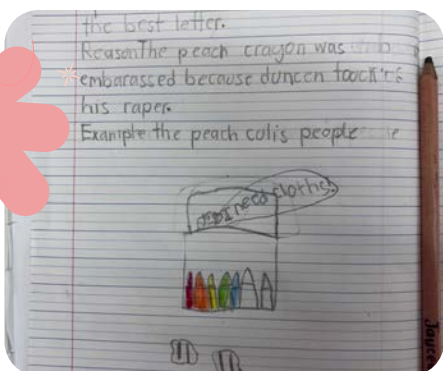 the best letter.
ReasonThe peach crayon was
embarassed because duncen toock
his raper.
Example the peach colis people
I need cloths!
Jayce